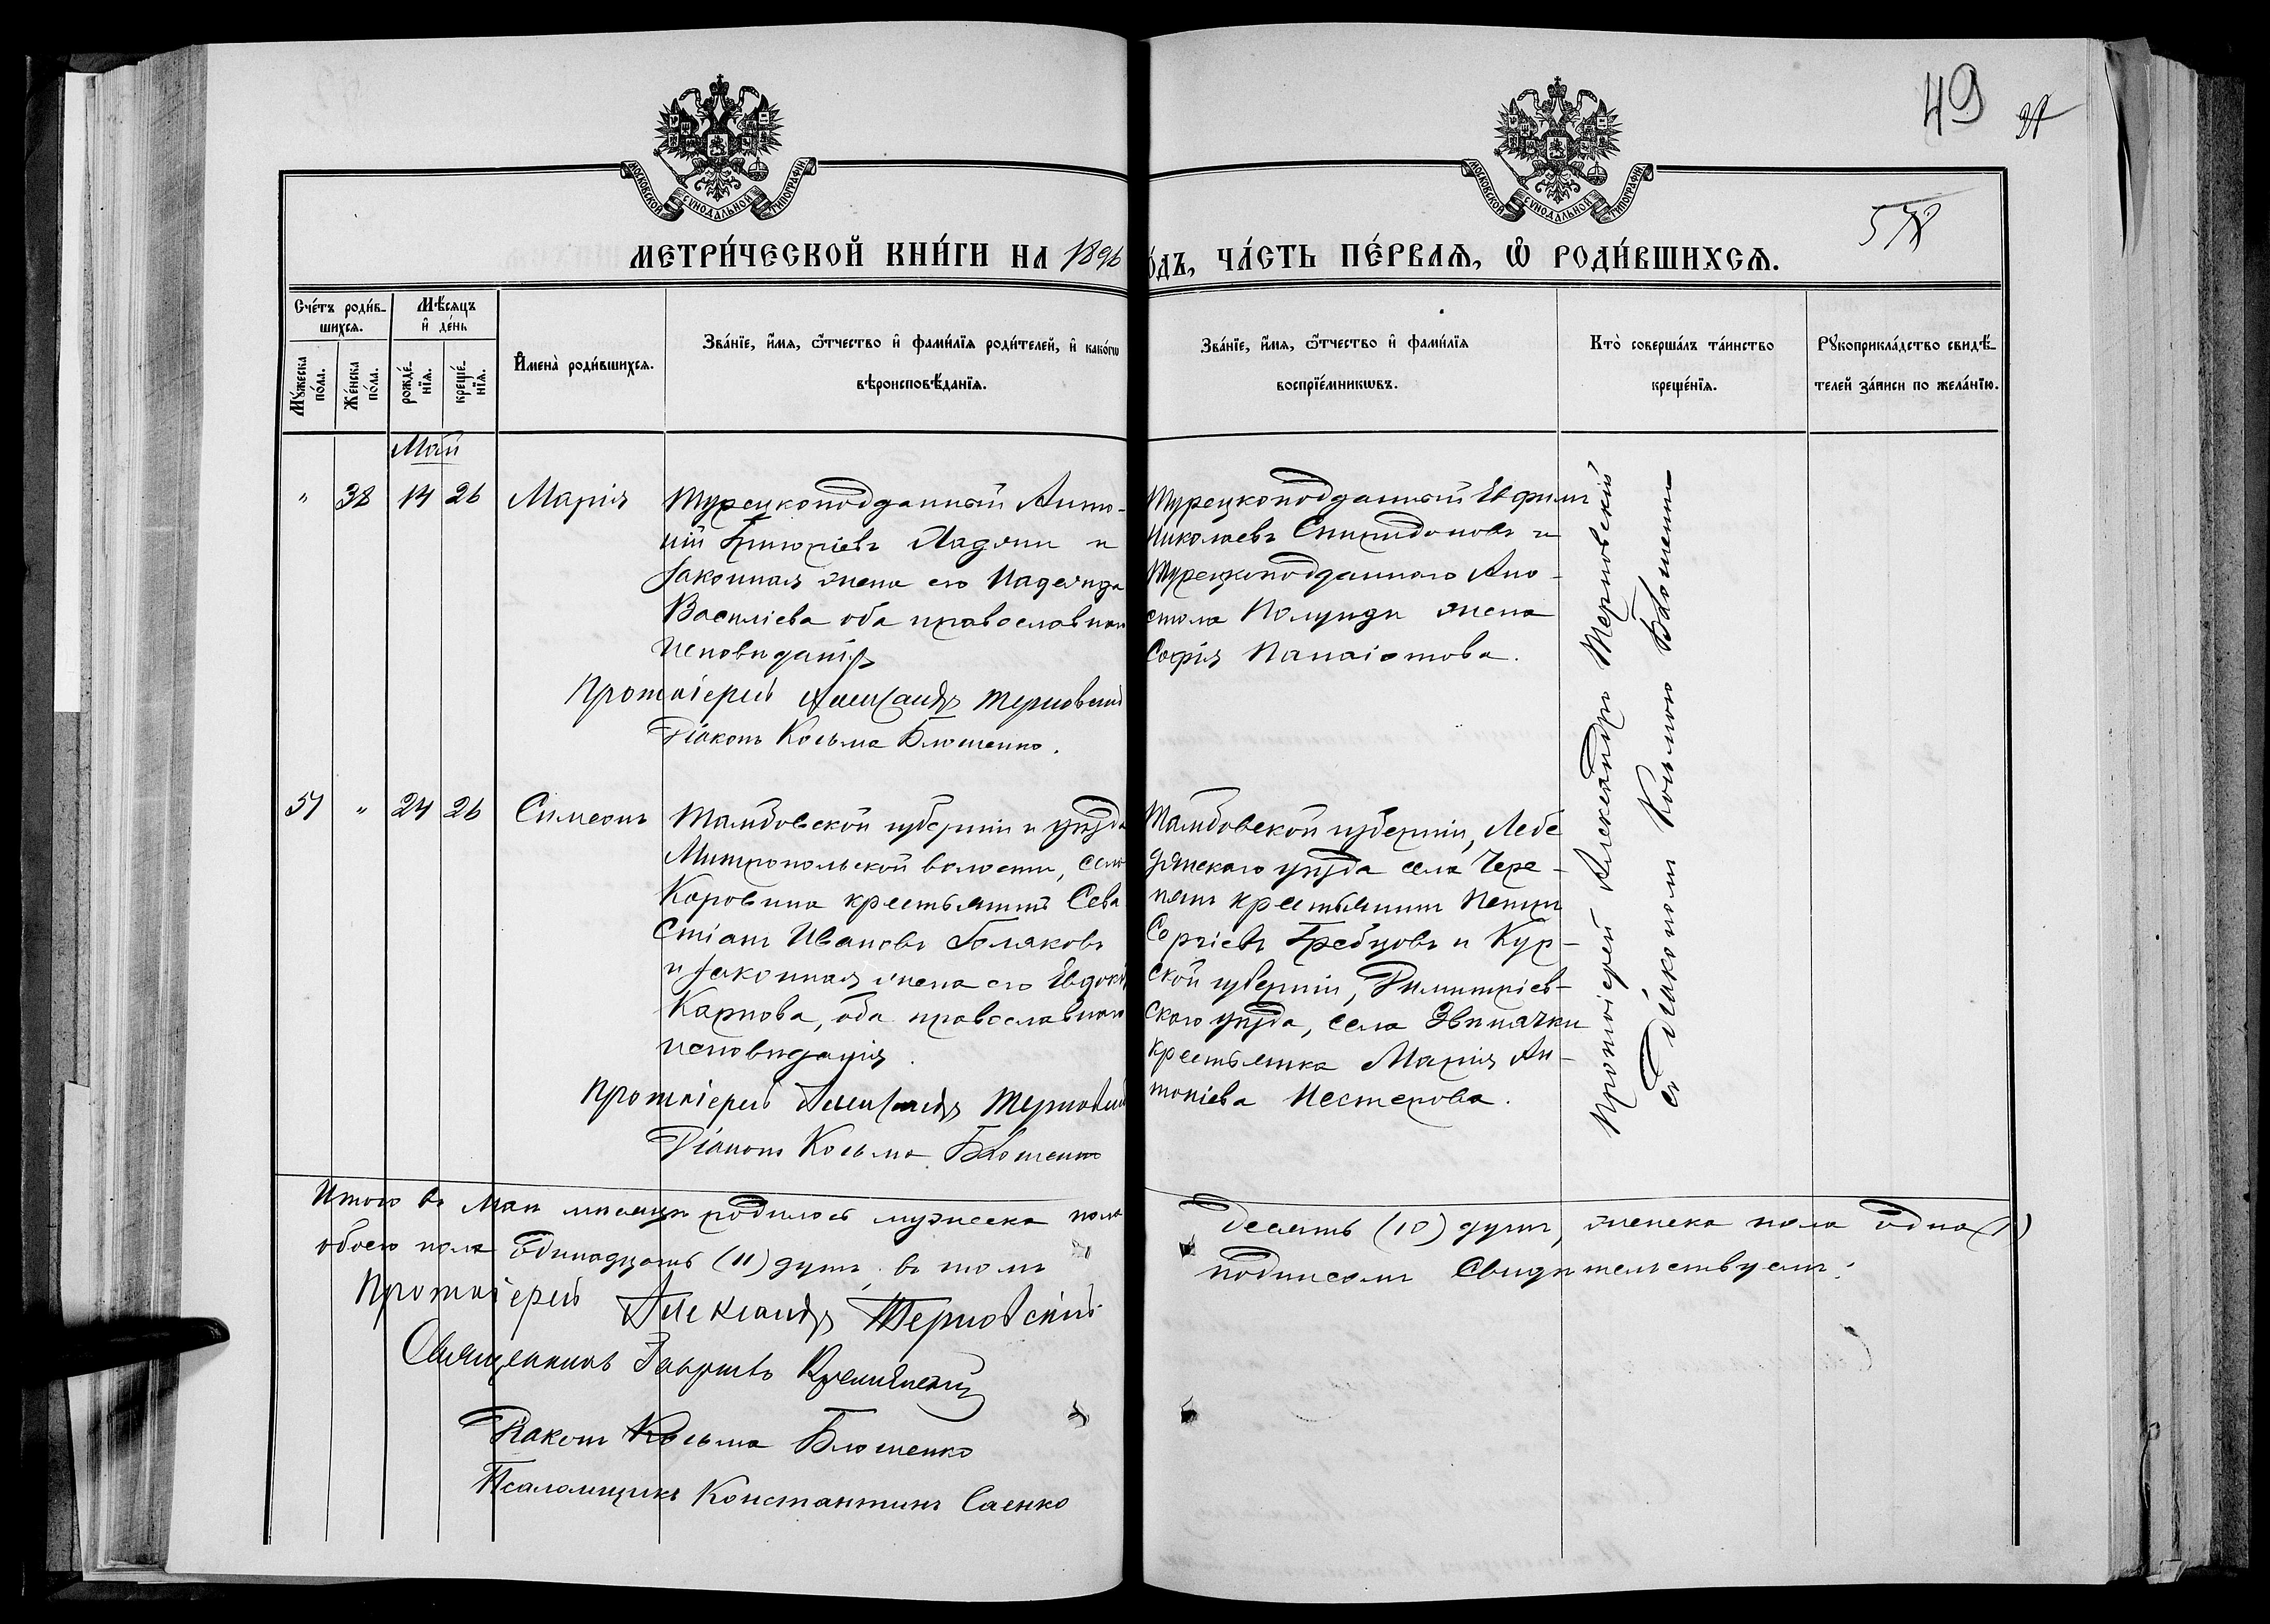 49
МОСКОВСКОЙ СѴНОДАЛЬНОЙ ТИПОГРАФІИ
МОСКОВСКОЙ СѴНОДАЛЬНОЙ ТИПОГРАФІИ
МЕТРИ́ЧЕСКОЙ КНИ́ГИ НА 1896
О́ДЪ, ЧА́СТЬ ПЕ́РВАѦ, Ѡ҆ РОДИ́ВШИХСѦ.
Сче́тъ роди́в-
шихсѧ.
Мѣ́сѧцъ
и҆ де́нь
Мꙋ́жеска
по́ла.
Же́нска
по́ла.
рожде́-
нїѧ.
креще́-
нїѧ.
И҆мена̀ роди́вшихсѧ.
Зва́нїе, и҆́мѧ, ѻ҆́тчество и҆ фами́лїѧ роди́телей, и҆ како́гѡ
вѣроисповѣ́данїѧ.
Зва́нїе, и҆́мѧ, ѻ҆́тчество и҆ фами́лїѧ
воспрїе́мникѡвъ.
Кто̀ соверша́лъ та́инство
креще́нїѧ.
Рꙋкоприкла́дство свидѣ́-
телей за́писи по жела́нїю.
Май
" 38 14 26 Марія
Турецкоподданный Анто-
ній Григоріевъ и
законная жена его Надежда
Василіева оба православнаго
исповѣданія
Протоіерей Александръ Терновскій
Діаконъ Козьма Блошенко.
Турецкоподданный Евфимъ
Николаевъ Спиридоновъ и
Турецкоподданнаго Апо-
стола жена
Софія Панаіотова.
Протоіерей Александръ Терновскій
съ діакономъ Козьмою Блошенко
51 " 24 26 Симеонъ
Тамбовской губерніи и уѣзда
Митропольской волости, села
Коровина крестьянинъ Сева
стіанъ Ивановъ Поляковъ
и законная жена его Евдокія
Карпова, оба православнаго
исповѣданія.
Протоіерей Александръ Терновскій
Діаконъ Козьма Блошенко
Тамбовской губерніи, Лебе
дянскаго уѣзда села Чере-
крестьянинъ Петръ
Сергіевъ Гребцовъ и Кур-
ской губерніи, Димитріев-
скаго уѣзда, села Звѣнячки
крестьянка Марія Ан-
тоніева Нестерова.
Итого въ Маѣ мѣсяцѣ родилось мужеска пола
десять (10) душъ, женска пола одна (1)
обоего пола одинадцать (11) душъ, въ томъ
подписомъ свидѣтельствуемъ:
Протоіерей Александръ Терновскій
Священникъ
Діаконъ Козьма Блошенко
Псаломщикъ Константинъ Саенко